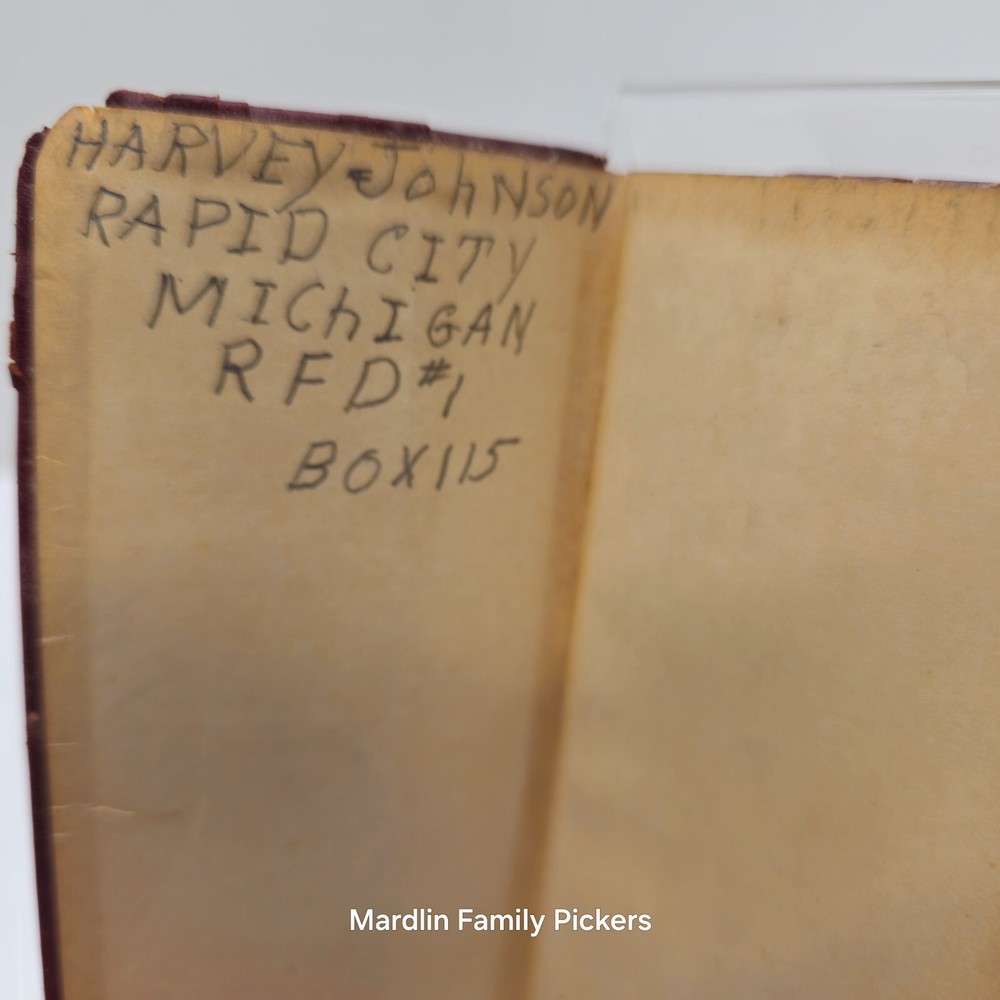 HARVEY JohNSON
RAPID CITY
MIChIGAN
RFD #1
BOX 115
Mardlin Family Pickers